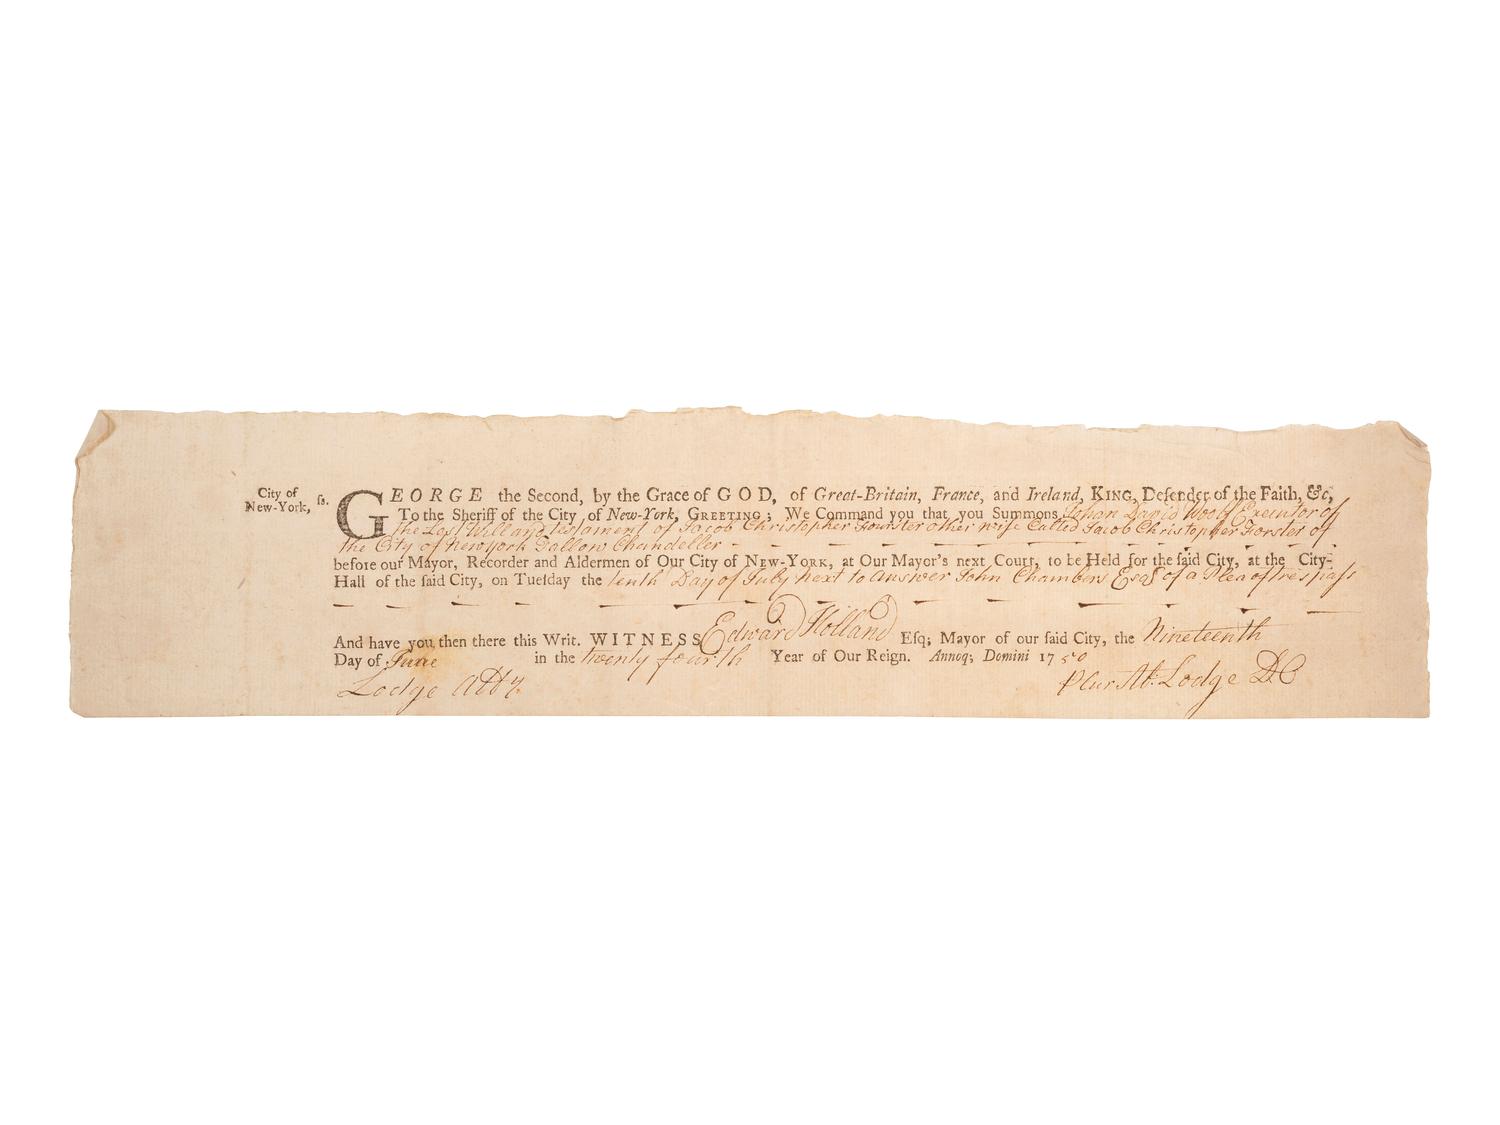 City of
New-York, ſs.
GEORGE the Second, by the Grace of GOD, of Great-Britain, France, and Ireland, KING, Defender of the Faith, &c,
To the Sheriff of the City of New-York, GREETING; We Command you that you Summons Johan David Woolf Executor of
the Last Will and testament of Jacob Christopher Fourster other wise Called Jacob Christopher Forster of
the City of Newyork Tallow Chandeller
before our Mayor, Recorder and Aldermen of Our City of NEW-YORK, at Our Mayor's next Court, to be Held for the ſaid City, at the City-
Hall of the ſaid City, on Tueſday the tenth Day of July next to answer John Chambers Esqr of a Plea of trespaſs
And have you then there this Writ. WITNESS Edward Holland Eſq; Mayor of our ſaid City, the Nineteenth
Day of June in the twenty fourth Year of Our Reign. Annoq; Domini 1750
Lodge Atty. Lodge DC